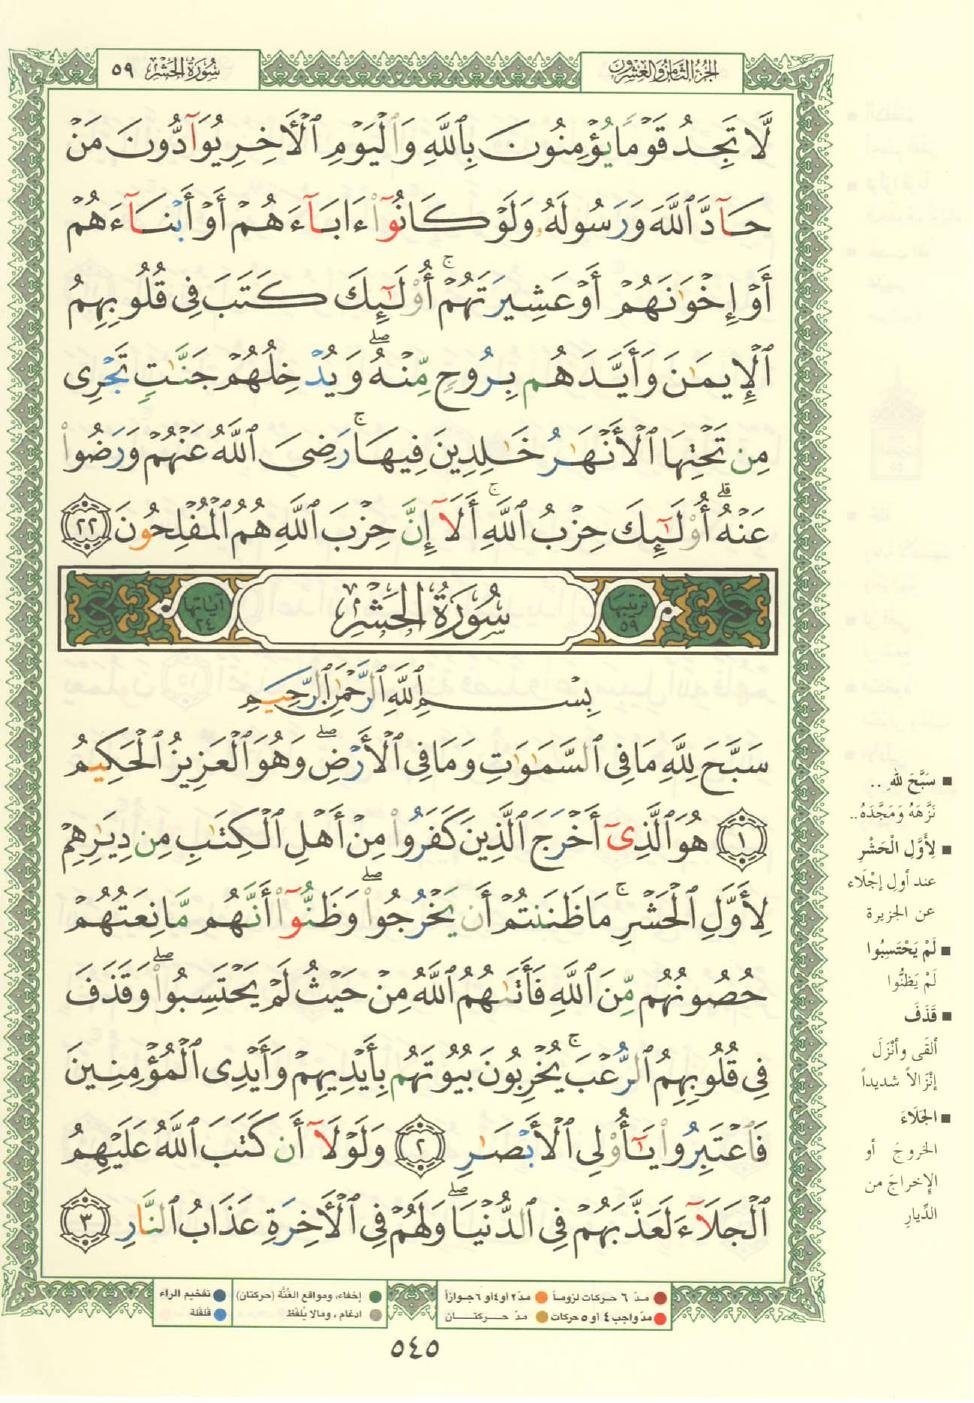 الجزء الثامن والعشرون
سورة الحشر ٥٩
لَّا تَجِدُ قَوْمًا يُؤْمِنُونَ بِٱللَّهِ وَٱلْيَوْمِ ٱلْأَخِرِ يُوَآدُّونَ مَنْ
حَآدَّ ٱللَّهَ وَرَسُولَهُۥ وَلَوْ كَانُوٓا۟ ءَابَآءَهُمْ أَوْ أَبْنَآءَهُمْ
أَوْ إِخْوَٰنَهُمْ أَوْ عَشِيرَتَهُمْ ۚ أُو۟لَٰٓئِكَ كَتَبَ فِى قُلُوبِهِمُ
ٱلْإِيمَٰنَ وَأَيَّدَهُم بِرُوحٍ مِّنْهُ ۖ وَيُدْخِلُهُمْ جَنَّٰتٍ تَجْرِى
مِن تَحْتِهَا ٱلْأَنْهَٰرُ خَٰلِدِينَ فِيهَا ۚ رَضِىَ ٱللَّهُ عَنْهُمْ وَرَضُوا۟
عَنْهُ ۚ أُو۟لَٰٓئِكَ حِزْبُ ٱللَّهِ ۚ أَلَآ إِنَّ حِزْبَ ٱللَّهِ هُمُ ٱلْمُفْلِحُونَ ٢٢
ترتيبها ٥٩ سُورَةُ الحَشْر آياتها ٢٤
بِسْمِ ٱللَّهِ ٱلرَّحْمَٰنِ ٱلرَّحِيمِ
سَبَّحَ لِلَّهِ مَا فِى ٱلسَّمَٰوَٰتِ وَمَا فِى ٱلْأَرْضِ ۖ وَهُوَ ٱلْعَزِيزُ ٱلْحَكِيمُ
١ هُوَ ٱلَّذِىٓ أَخْرَجَ ٱلَّذِينَ كَفَرُوا۟ مِنْ أَهْلِ ٱلْكِتَٰبِ مِن دِيَٰرِهِمْ
لِأَوَّلِ ٱلْحَشْرِ ۚ مَا ظَنَنتُمْ أَن يَخْرُجُوا۟ ۖ وَظَنُّوٓا۟ أَنَّهُم مَّانِعَتُهُمْ
حُصُونُهُم مِّنَ ٱللَّهِ فَأَتَىٰهُمُ ٱللَّهُ مِنْ حَيْثُ لَمْ يَحْتَسِبُوا۟ ۖ وَقَذَفَ
فِى قُلُوبِهِمُ ٱلرُّعْبَ ۚ يُخْرِبُونَ بُيُوتَهُم بِأَيْدِيهِمْ وَأَيْدِى ٱلْمُؤْمِنِينَ
فَٱعْتَبِرُوا۟ يَٰٓأُو۟لِى ٱلْأَبْصَٰرِ ٢ وَلَوْلَآ أَن كَتَبَ ٱللَّهُ عَلَيْهِمُ
ٱلْجَلَآءَ لَعَذَّبَهُمْ فِى ٱلدُّنْيَا ۖ وَلَهُمْ فِى ٱلْأَخِرَةِ عَذَابُ ٱلنَّارِ ٣
■ سَبَّحَ للهِ ..
نَزَّهَهُ وَمَجَّدَهُ..
■ لِأَوَّلِ الْحَشْرِ
عند أول إجْلَاء
عن الجزيرة
■ لَمْ يَحْتَسِبُوا
لَمْ يَظُنُّوا
■ قَذَفَ
ألقى وأنْزَلَ
إنْزَالاً شديداً
■ الجَلَاءَ
الخروجَ أو
الإخراجَ من
الدِّيارِ
مدّ ٦ حركات لزوماً مدّ ٢ او ٤ او ٦ جوازاً إخفاء، ومواقع الغُنَّة (حركتان) تفخيم الراء
مدّ واجب ٤ او ٥ حركات مدّ حركتان ادغام، ومالا يُلفَظ قلقلة
٥٤٥